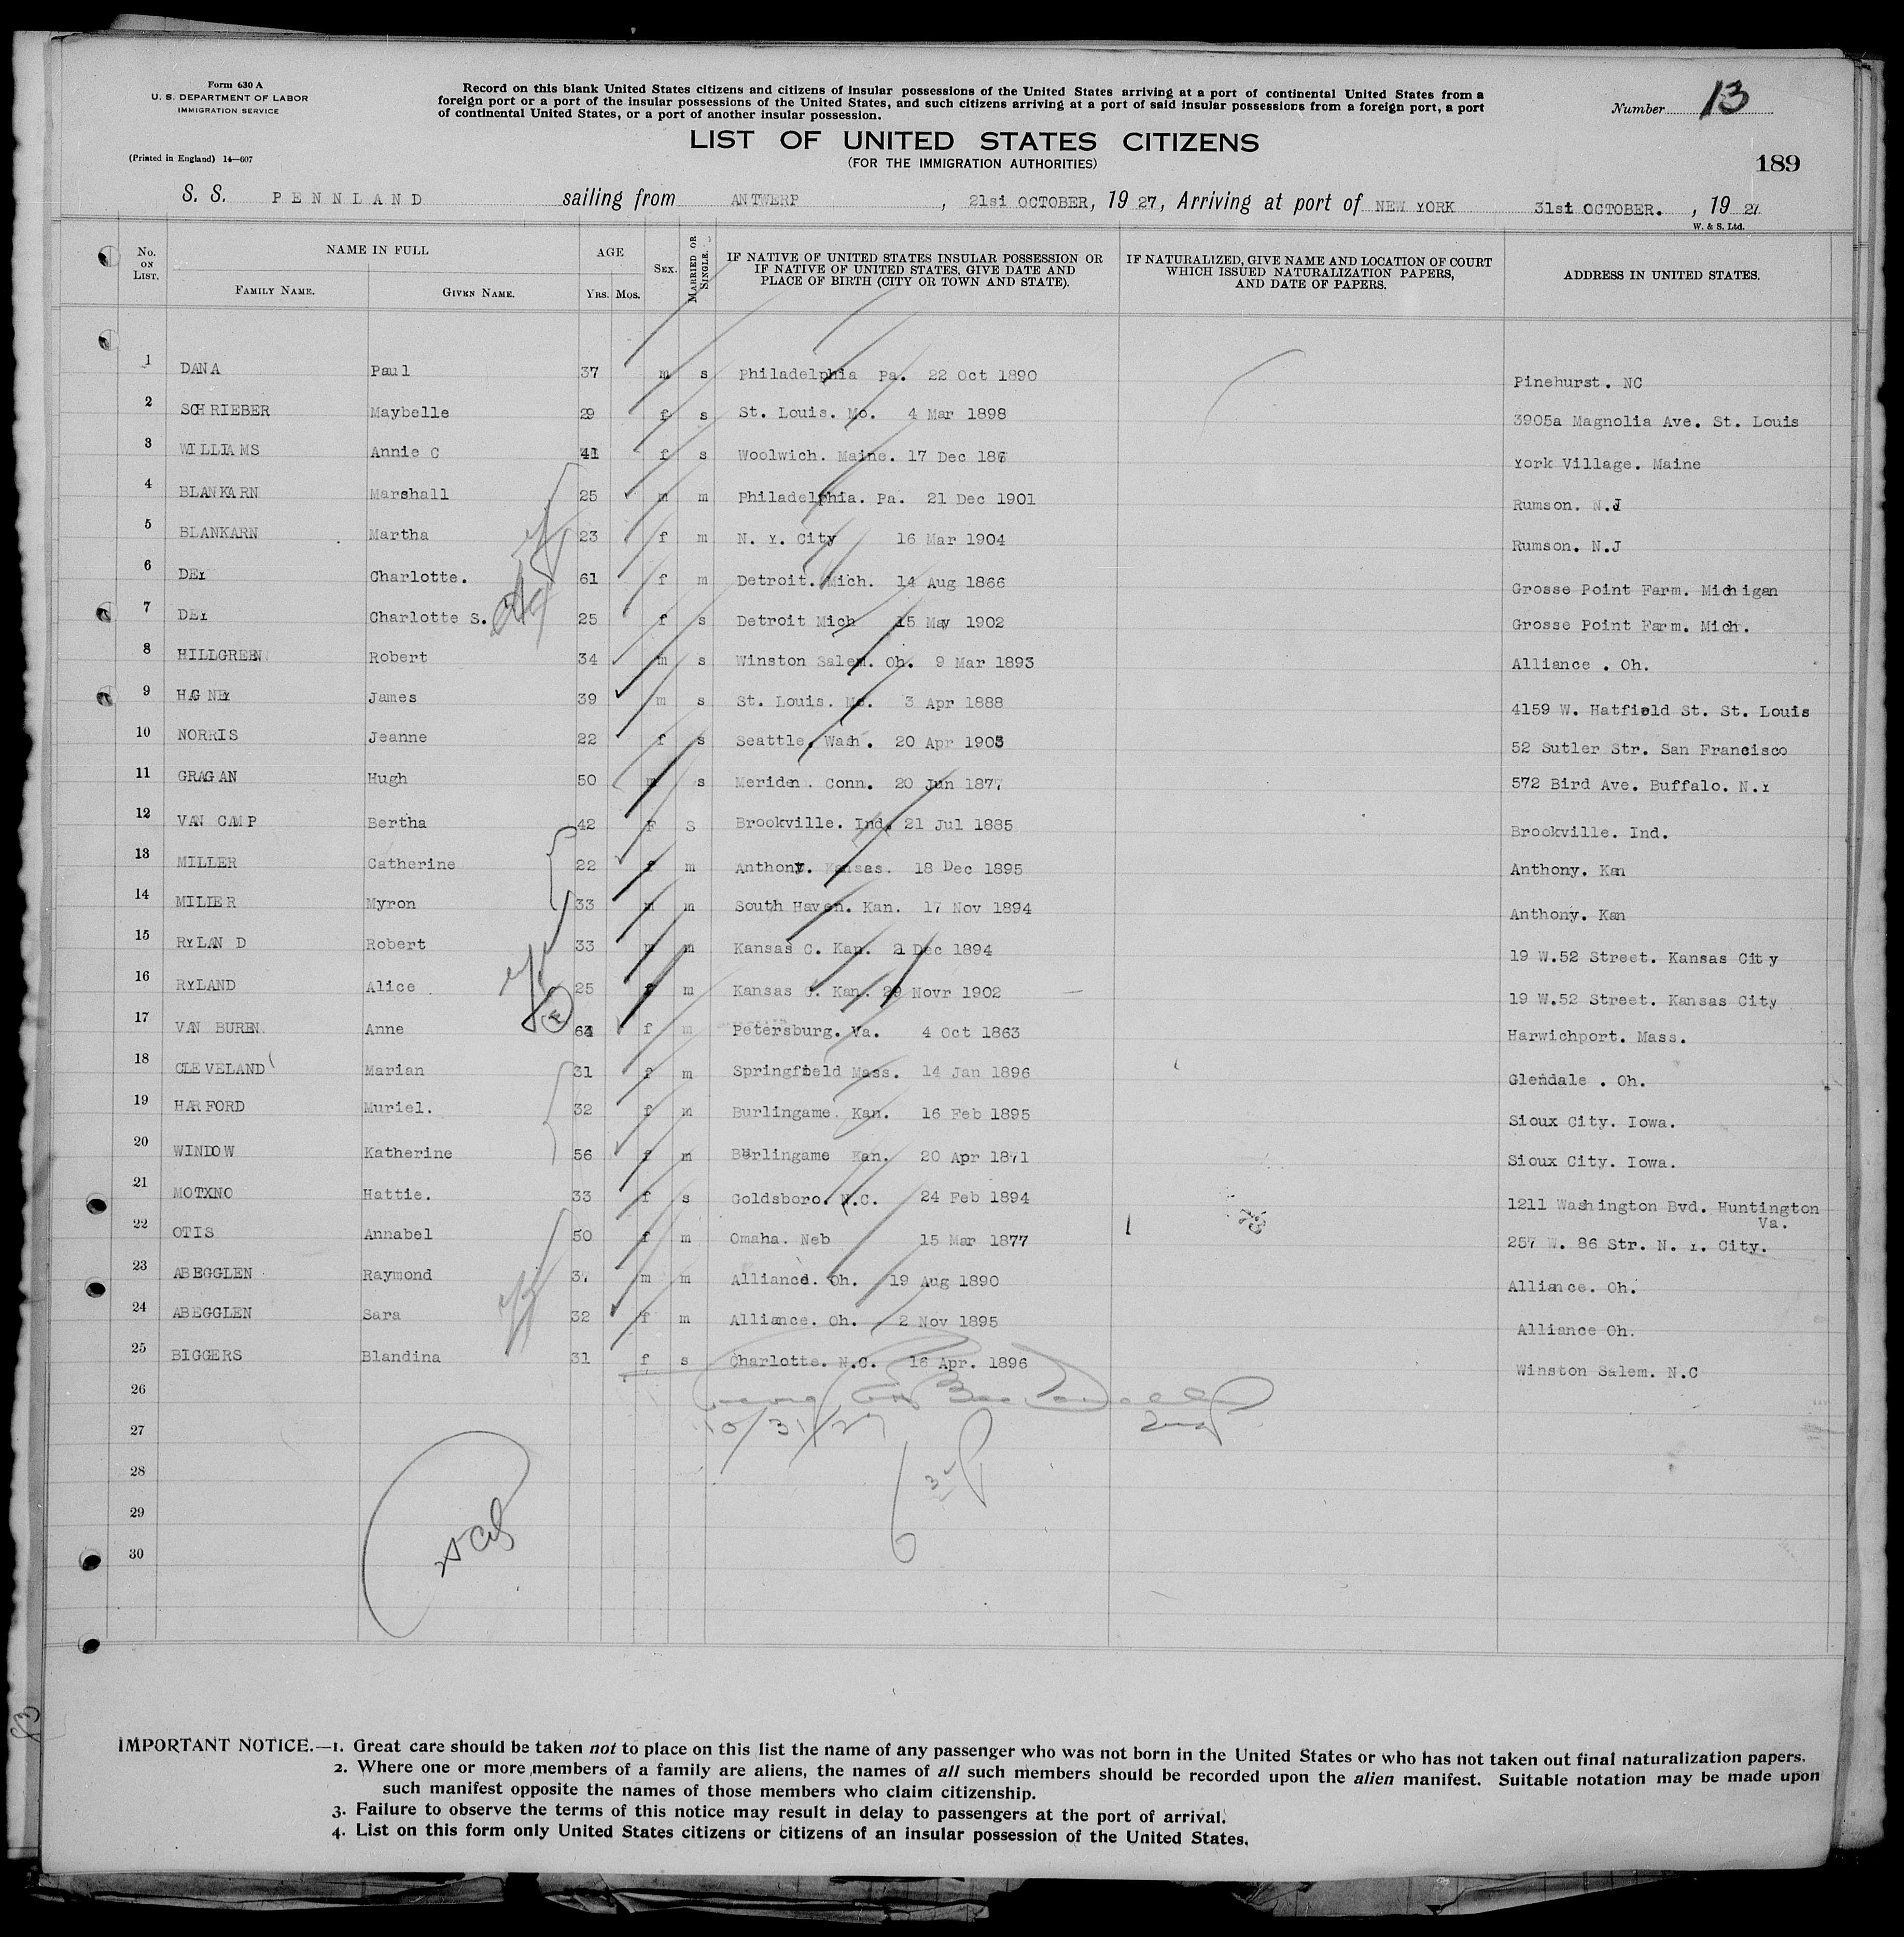 Form 630 A
U. S. DEPARTMENT OF LABOR
IMMIGRATION SERVICE
(Printed in England) 14—607
Record on this blank United States citizens and citizens of insular possessions of the United States arriving at a port of continental United States from a
foreign port or a port of the insular possessions of the United States, and such citizens arriving at a port of said insular possessions from a foreign port, a port
of continental United States, or a port of another insular possession.
Number 13
LIST OF UNITED STATES CITIZENS
(FOR THE IMMIGRATION AUTHORITIES)
189
S. S. PENNLAND sailing from ANTWERP, 21st OCTOBER, 19 27, Arriving at port of NEW YORK 31st OCTOBER. , 19 27
W. & S. Ltd.
No. ON LIST. NAME IN FULL FAMILY NAME. GIVEN NAME. AGE YRS. MOS. SEX. MARRIED OR SINGLE. IF NATIVE OF UNITED STATES INSULAR POSSESSION OR IF NATIVE OF UNITED STATES, GIVE DATE AND PLACE OF BIRTH (CITY OR TOWN AND STATE). IF NATURALIZED, GIVE NAME AND LOCATION OF COURT WHICH ISSUED NATURALIZATION PAPERS, AND DATE OF PAPERS. ADDRESS IN UNITED STATES.
1 DANA Paul 37 m s Philadelphia Pa. 22 Oct 1890 Pinehurst. NC
2 SCHRIEBER Maybelle 29 f s St. Louis. Mo. 4 Mar 1898 3905a Magnolia Ave. St. Louis
3 WILLIAMS Annie C 41 f s Woolwich. Maine. 17 Dec York Village. Maine
4 BLANKARN Marshall 25 m m Philadelphia. Pa. 21 Dec 1901 Rumson. N.J
5 BLANKARN Martha 23 f m N. Y. City 16 Mar 1904 Rumson. N.J
6 DEY Charlotte. 61 f m Detroit. Mich. 14 Aug 1866 Grosse Point Farm. Michigan
7 DEY Charlotte S. 25 f s Detroit Mich 15 May 1902 Grosse Point Farm. Mich.
8 HILLGREEN Robert 34 m s Winston Salem. Oh. 9 Mar 1893 Alliance . Oh.
9 HAGNEY James 39 m s St. Louis. Mo. 3 Apr 1888 4159 W. Hatfield St. St. Louis
10 NORRIS Jeanne 22 f s Seattle. Wash. 20 Apr 1905 52 Sutler Str. San Francisco
11 GRAGAN Hugh 50 m s Meriden. Conn. 20 Jun 1877 572 Bird Ave. Buffalo. N.Y
12 VAN CAMP Bertha 42 F S Brookville. Ind. 21 Jul 1885 Brookville. Ind.
13 MILLER Catherine 22 f m Anthony. Kansas. 18 Dec 1895 Anthony. Kan
14 MILLER Myron 33 m m South Haven. Kan. 17 Nov 1894 Anthony. Kan
15 RYLAND Robert 33 m m Kansas C. Kan. 2 Dec 1894 19 W.52 Street. Kansas City
16 RYLAND Alice 25 f m Kansas C. Kan. 29 Novr 1902 19 W.52 Street. Kansas City
17 VAN BUREN Anne 64 f m Petersburg. Va. 4 Oct 1863 Harwichport. Mass.
18 CLEVELAND Marian 31 f m Springfield Mass. 14 Jan 1896 Glendale . Oh.
19 HARFORD Muriel. 32 f m Burlingame. Kan. 16 Feb 1895 Sioux City. Iowa.
20 WINDOW Katherine 56 f m Burlingame Kan. 20 Apr 1871 Sioux City. Iowa.
21 MOTXNO Hattie. 33 f s Goldsboro. N.C. 24 Feb 1894 1211 Washington Bvd. Huntington
Va.
22 OTIS Annabel 50 f m Omaha. Neb 15 Mar 1877 257 W. 86 Str. N. Y. City.
23 ABEGGLEN Raymond 37 m m Alliance. Oh. 19 Aug 1890 Alliance. Oh.
24 ABEGGLEN Sara 32 f m Alliance. Oh. 2 Nov 1895 Alliance Oh.
25 BIGGERS Blandina 31 f s Charlotte. N.C. 16 Apr. 1896 Winston Salem. N.C
26
27 10/31/27
28
29
30
IMPORTANT NOTICE.—1. Great care should be taken not to place on this list the name of any passenger who was not born in the United States or who has not taken out final naturalization papers.
2. Where one or more members of a family are aliens, the names of all such members should be recorded upon the alien manifest. Suitable notation may be made upon
such manifest opposite the names of those members who claim citizenship.
3. Failure to observe the terms of this notice may result in delay to passengers at the port of arrival.
4. List on this form only United States citizens or citizens of an insular possession of the United States.